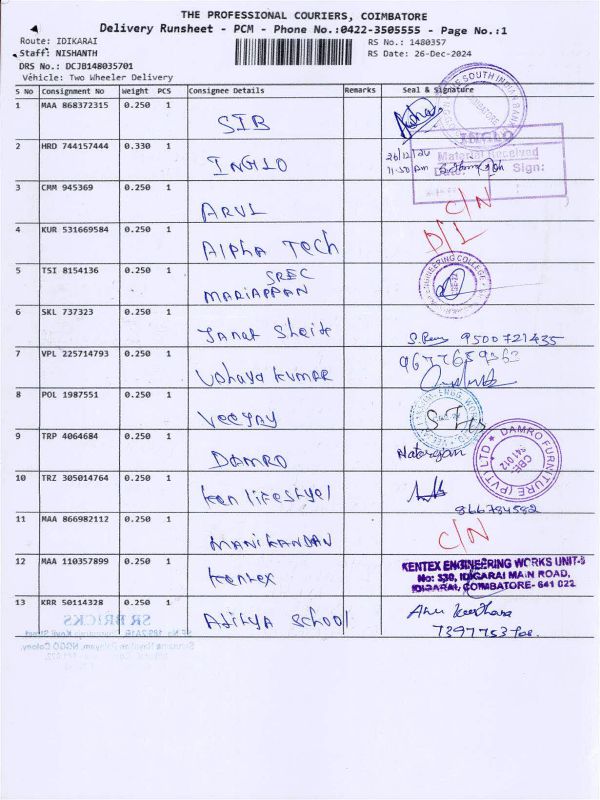 THE PROFESSIONAL COURIERS, COIMBATORE
Delivery Runsheet - PCM - Phone No.:0422-3505555 - Page No.:1
Route: IDIKARAI
RS No.: 1480357
Staff: NISHANTH
RS Date: 26-Dec-2024
DRS No.: DCJB148035701
Vehicle: Two Wheeler Delivery
S No Consignment No Weight PCS Consignee Details Remarks Seal & Signature
1 MAA 868372315 0.250 1 SIB
SOUTH INDIAN BANK
COIMBATORE
2 HRD 744157444 0.330 1 INGLO
INGLO
Material Received
Sign:
3 CMM 945369 0.250 1 ARUL C/N
4 KUR 531669584 0.250 1 Alpha Tech D/L
5 TSI 8154136 0.250 1 SREC
MARIAPPAN
ENGINEERING COLLEGE
6 SKL 737323 0.250 1
9500721435
7 VPL 225714793 0.250 1 KUMAR
8 POL 1987551 0.250 1 Veejay
9 TRP 4064684 0.250 1 DAMRO Natarajan
DAMRO FURNITURE (PVT) LTD
CBE
641 012
10 TRZ 305014764 0.250 1 Ken lifestyel
866784582
11 MAA 866982112 0.250 1 MANIKANDAN C/N
12 MAA 110357899 0.250 1 Kentex
KENTEX ENGINEERING WORKS UNIT-
No: 330, IDIGARAI MAIN ROAD,
IDIGARAI, COIMBATORE- 641 022
13 KRR 50114328 0.250 1 Aditya School
SR BRICKS
NGGO Colony,